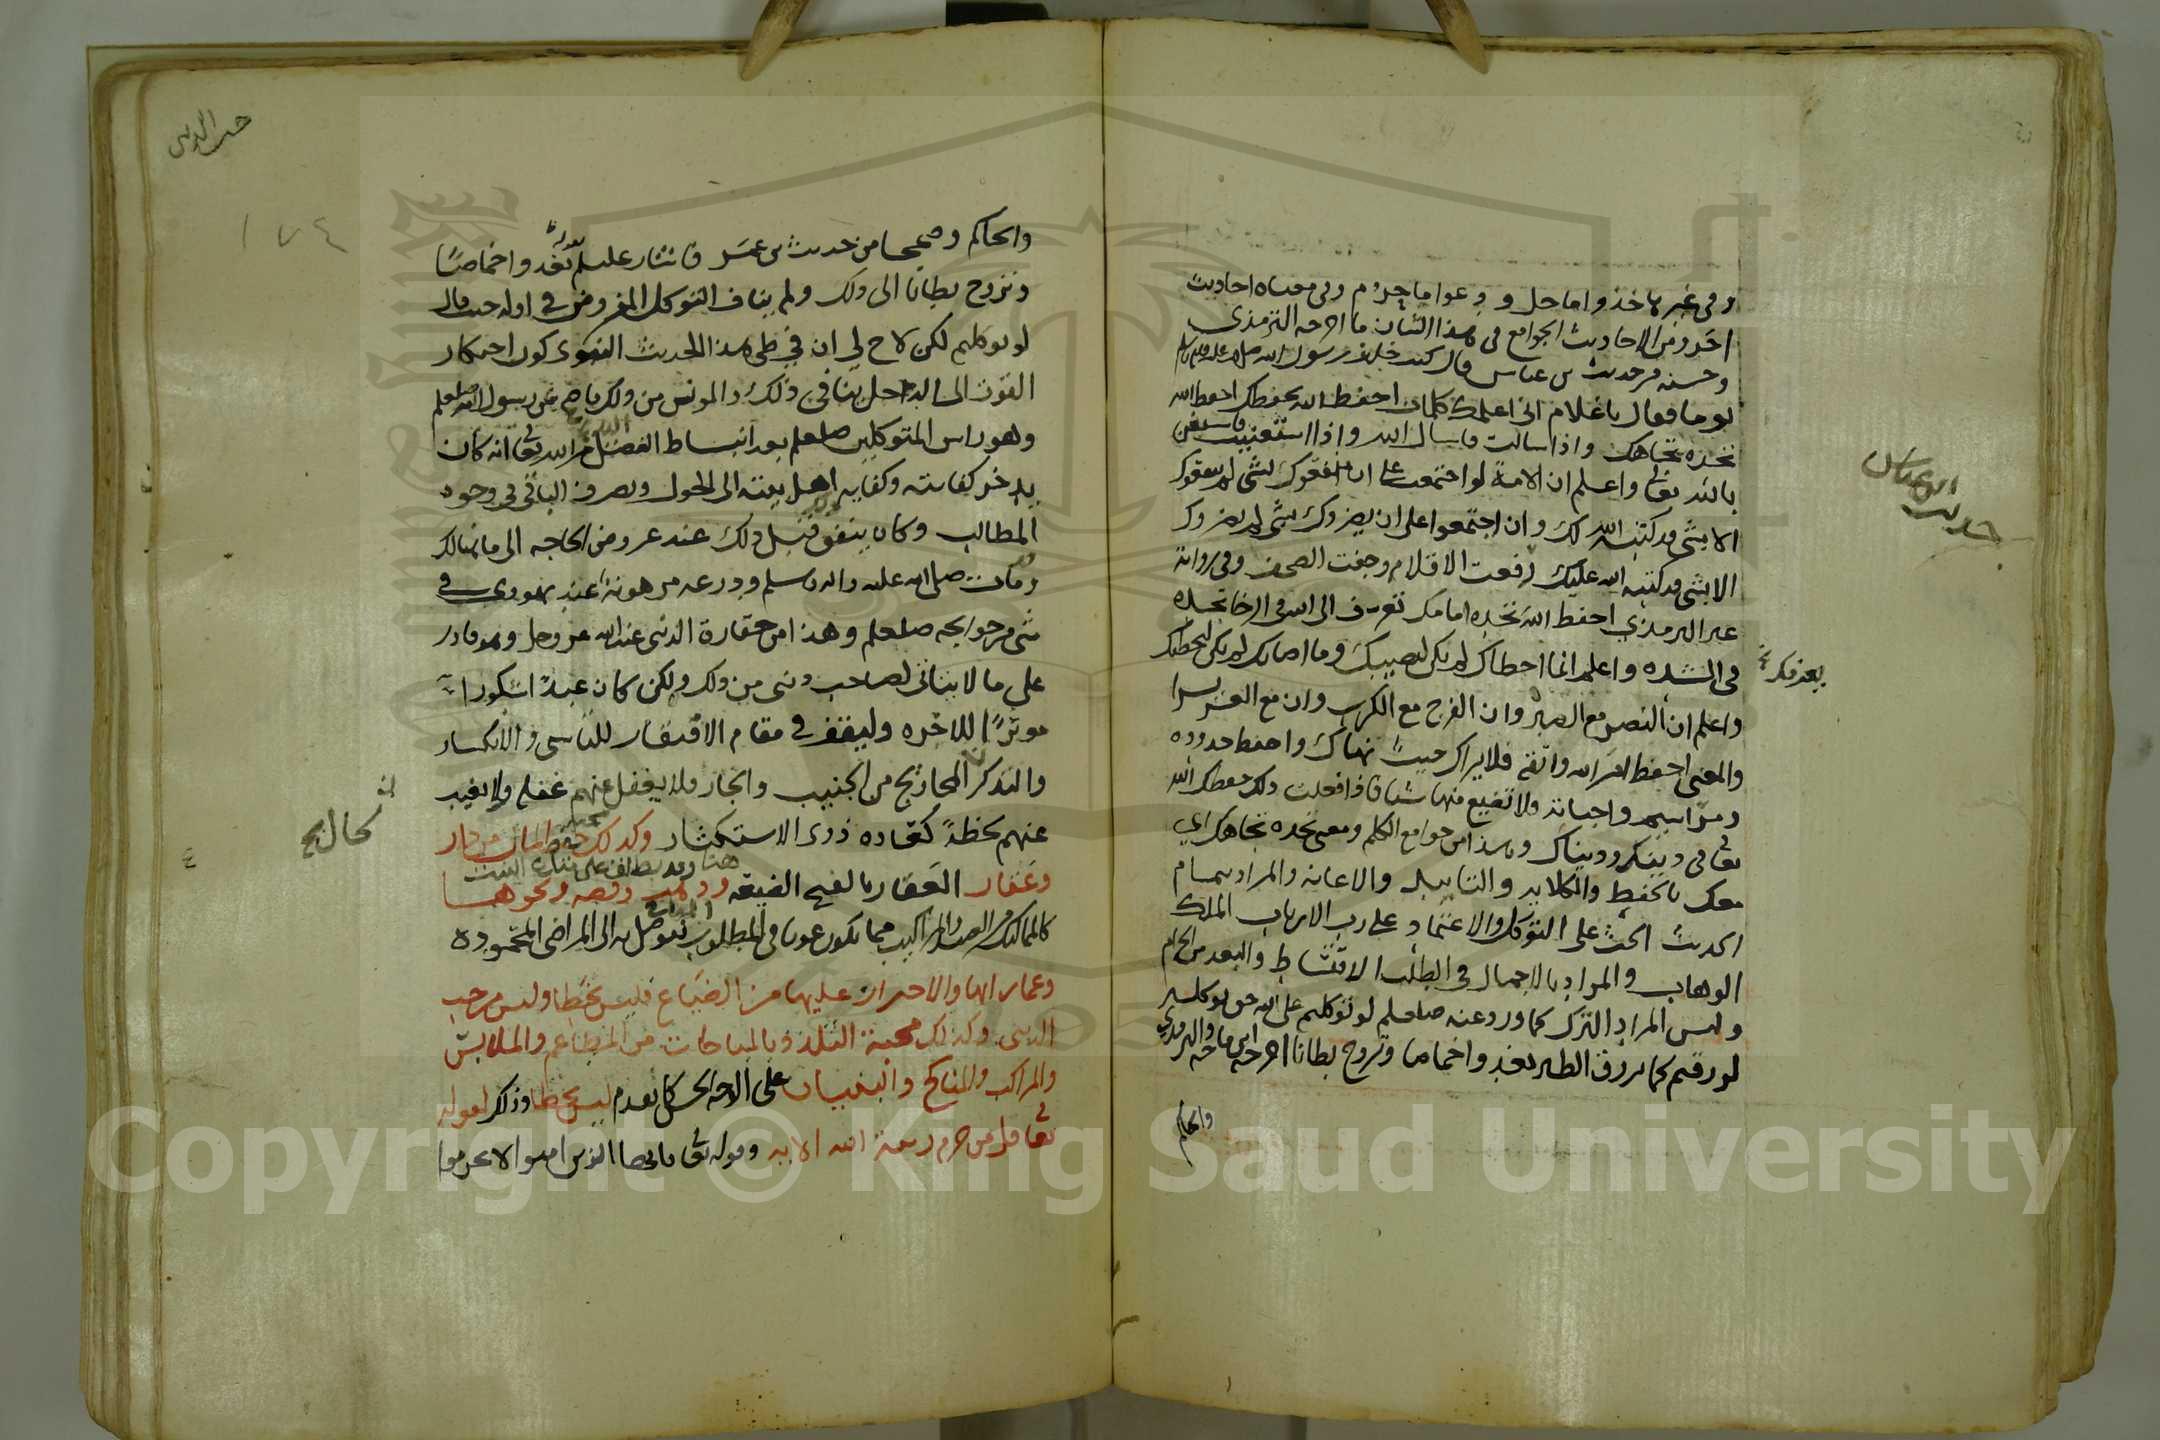 وفي غيره خذوا ما حل ودعوا ما حرم وفي معناه احاديث
اخر ومن الاحاديث الجوامع في هذا الشان ما اخرجه الترمذي
وحسنه من حديث بن عباس قال كنت خلف رسول الله صلى الله عليه واله وسلم
يوما فقال يا غلام اني اعلمك كلمات احفظ الله يحفظك احفظ الله
تجده تجاهك واذا سالت فاسال الله واذا استعنت فاستعن
بالله تعالى واعلم ان الامة لو اجتمعت على ان ينفعوك بشي لم ينفعوك
الا بشي قد كتبه الله لك وان اجتمعوا على ان يضروك بشي لم يضروك
الا بشي قد كتبه الله عليك رفعت الاقلام وجفت الصحف وفي رواية
غير الترمذي احفظ الله تجده امامك تعرف الى الله في الرخا
في الشده واعلم ان ما اخطاك لم يكن ليصيبك وما اصابك لم يكن ليخطئك
واعلم ان النصر مع الصبر وان الفرج مع الكرب وان مع العسر يسرا
والمعنى احفظ امر الله واتقه فلا يراك حيث نهاك واحفظ حدوده
ومراسيم واجباته ولا تضيع منها شيا فاذا فعلت ذلك حفظك الله
تعالى في دينك ودنياك وهذا من جوامع الكلم ومعنى تجده تجاهك اي
معك بالحفظ والكلاية والتاييد والاعانه والمراد بتمام
الحديث الحث على التوكل والاعتماد على رب الارباب الملك
الوهاب والمراد بالاجمال في الطلب الاقتصاد والبعد من الحرام
وليس المراد الترك كما ورد عنه صلعلم لو توكلتم على الله حق توكله
لرزقتم كما يرزق الطير تغدو اخماصا وتروح بطانا اخرجه ابن ماجه والترمذي
والحاكم
حديث ابن عباس
يعرفك
حب الدنيا
١٧٤
والحاكم وصححا من حديث بن عمر فاشار عليلم بقوله تغدوا خماصا
وتروح بطانا الى ذلك ولم يناف التوكل المفروض في اوله حيث قال
لو توكلتم لكن لاح لي ان في طي هذا الحديث النبوي كون احتكار
القوت الى ينافي ذلك والمونس من ذلك ما صح عن رسول الله صلعلم
وهو راس المتوكلين صلعلم بعد انبساط الفضل من الله تعالى انه كان
يدخر كفايته وكفاية اهل بيته الى الحول ويصرف الباقي في وجوه
المطالب وكان ينفق قبل ذلك عند عروض الحاجه الى ما هنالك
ومات صلى الله عليه واله وسلم ودرعه مرهونة عند يهودي في
شي من حوايجه صلعلم وهذا من حقارة الدنيا عند الله عز وجل وهو قادر
على ما لا ينافي لصاحب دنيا من ذلك ولكن كان عبدا شكورا
موثرا للاخره وليقف في مقام الافتقار للتاسي والانكسار
والتذكر المحاويج من الجنيب والجار فلا يغفل عنهم غفله ولا يغيب
عنهم لحظة كعاده ذوي الاستكثار وكذلك حفظ المال من دار
وعقار العقار بالفتح الضيعه ودوهب وفضه ونحوها
كالمماليك من العبيد والمراكيب مما يكون عونا في المطلوب يتوصل به الى المراضي المحموده
وعمارتها والاحتراز عليها من الضياع فليس يخطا وليس من حب
الدنيا وكذلك محبة التلذذ بالمباحات من المطاعم والملابس
والمراكب والمناكح والبنيان على الوجه الحسن كما تقدم ليس بخطا وذلك لقوله
تعالى قل من حرم زينة الله الايه وقوله تعالى يايها الذين امنوا لا تحرموا
Copyright © King Saud University